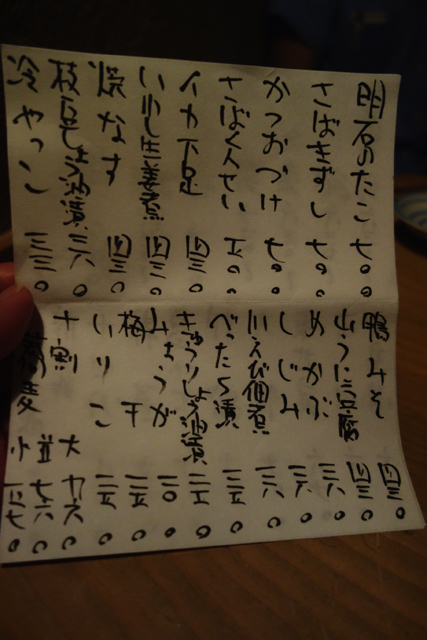 明石のたこ 七〇〇
さばきずし 七〇〇
かつおづけ 七〇〇
さばくんせい 五〇〇
イカ下足 四三〇
いわし生姜煮 四三〇
焼なす 四三〇
枝豆しょう油漬 三六〇
冷やっこ 三三〇
鴨みそ 四三〇
山うに豆腐 四三〇
めかぶ 三六〇
しじみ 三六〇
川えび佃煮
べったら漬
きゅうりしょう油漬
みょうが
梅干
いりこ
十割 大
蕎麦 並 七六〇
小